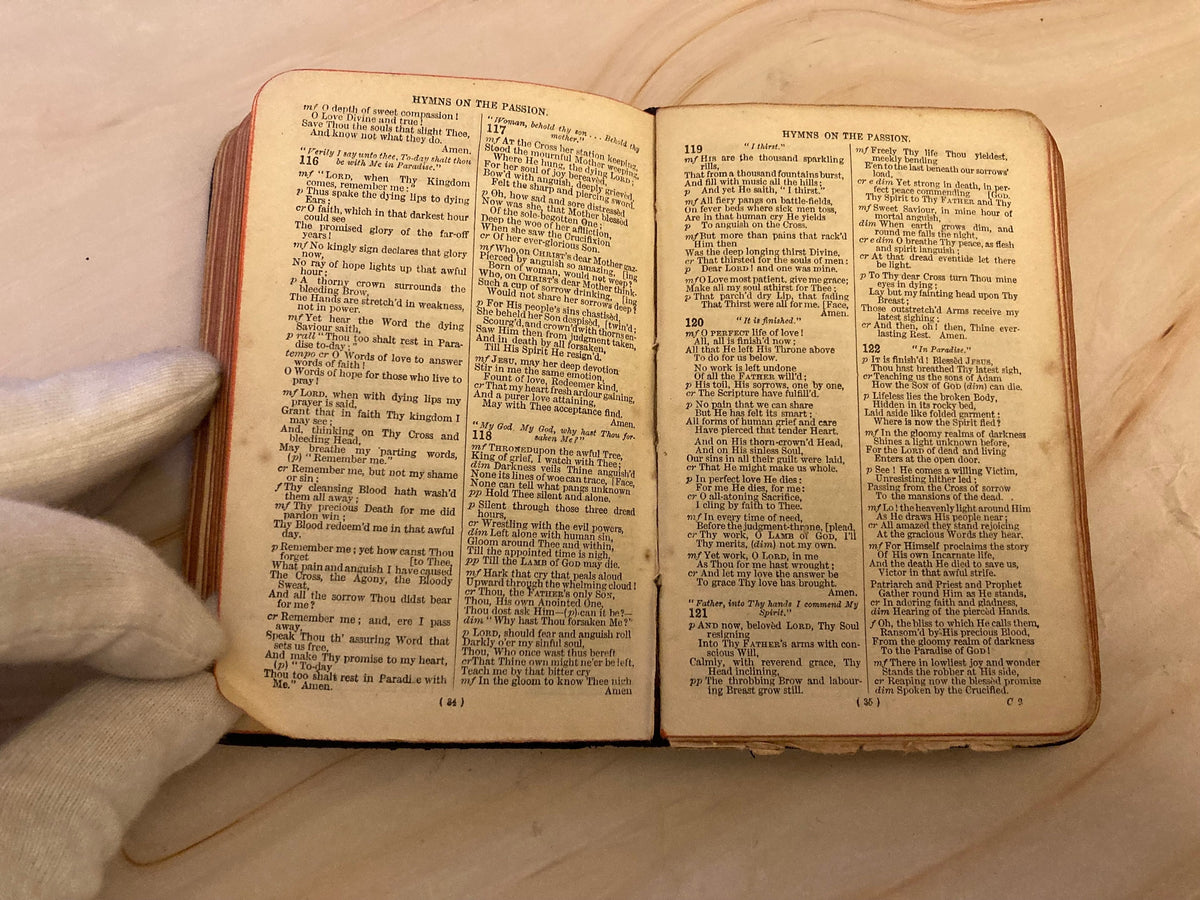 HYMNS ON THE PASSION.
mf O depth of sweet compassion!
O Love Divine and true!
Save Thou the souls that slight Thee,
And know not what they do.
Amen.
"Verily I say unto thee, To-day shalt thou
116 be with Me in Paradise."
mf "LORD, when Thy Kingdom
comes, remember me;"
p Thus spake the dying lips to dying
Ears;
cr O faith, which in that darkest hour
could see
The promised glory of the far-off
years!
mf No kingly sign declares that glory
now,
No ray of hope lights up that awful
hour;
p A thorny crown surrounds the
bleeding Brow,
The Hands are stretch'd in weakness,
not in power.
mf Yet hear the Word the dying
Saviour saith,
p rall "Thou too shalt rest in Para-
dise to-day;"
tempo cr O Words of love to answer
words of faith!
O Words of hope for those who live to
pray!
mf LORD, when with dying lips my
prayer is said,
Grant that in faith Thy kingdom I
may see;
And, thinking on Thy Cross and
bleeding Head,
May breathe my parting words,
(p) "Remember me."
cr Remember me, but not my shame
or sin;
f Thy cleansing Blood hath wash'd
them all away;
mf Thy precious Death for me did
pardon win;
Thy Blood redeem'd me in that awful
day.
p Remember me; yet how canst Thou
forget [to Thee,
What pain and anguish I have caused
The Cross, the Agony, the Bloody
Sweat,
And all the sorrow Thou didst bear
for me?
cr Remember me; and, ere I pass
away,
Speak Thou th' assuring Word that
sets us free,
And make Thy promise to my heart,
(p) "To-day
Thou too shalt rest in Paradise with
Me." Amen.
"Woman, behold thy son . . . Behold thy
117 mother."
mf AT the Cross her station keeping,
Stood the mournful Mother weeping,
Where He hung, the dying LORD;
For her soul of joy bereavèd,
Bow'd with anguish, deeply grievèd,
Felt the sharp and piercing sword.
p Oh, how sad and sore distressèd
Now was she, that Mother blessèd
Of the sole-begotten One;
Deep the woe of her affliction,
When she saw the Crucifixion
cr Of her ever-glorious Son.
mf Who, on CHRIST'S dear Mother gaz-
Pierced by anguish so amazing, [ing
Born of woman, would not weep?
Who, on CHRIST'S dear Mother think-
Such a cup of sorrow drinking, [ing
Would not share her sorrows deep?
p For His people's sins chastisèd,
She beheld her Son despisèd, [twin'd;
Scourg'd, and crown'd with thorns en-
Saw Him then from judgment taken,
And in death by all forsaken,
Till His Spirit He resign'd.
mf JESU, may her deep devotion
Stir in me the same emotion,
Fount of love, Redeemer kind,
cr That my heart fresh ardour gaining,
And a purer love attaining,
May with Thee acceptance find.
Amen.
"My God, My God, why hast Thou for-
118 saken Me?"
mf THRONED upon the awful Tree,
King of grief, I watch with Thee;
dim Darkness veils Thine anguish'd
None its lines of woe can trace, [Face,
None can tell what pangs unknown
pp Hold Thee silent and alone.
p Silent through those three dread
hours,
cr Wrestling with the evil powers,
dim Left alone with human sin,
Gloom around Thee and within,
Till the appointed time is nigh,
pp Till the LAMB of GOD may die.
mf Hark that cry that peals aloud
Upward through the whelming cloud!
cr Thou, the FATHER'S only Son,
Thou, His own Anointed One,
Thou dost ask Him—(p) can it be?—
dim "Why hast Thou forsaken Me?"
p LORD, should fear and anguish roll
Darkly o'er my sinful soul,
Thou, Who once wast thus bereft
cr That Thine own might ne'er be left,
Teach me by that bitter cry
mf In the gloom to know Thee nigh
Amen
( 34 )
HYMNS ON THE PASSION.
119 "I thirst."
mf HIS are the thousand sparkling
rills,
That from a thousand fountains burst,
And fill with music all the hills;
p And yet He saith, "I thirst."
mf All fiery pangs on battle-fields,
On fever beds where sick men toss,
Are in that human cry He yields
p To anguish on the Cross.
mf But more than pains that rack'd
Him then
Was the deep longing thirst Divine,
cr That thirsted for the souls of men:
p Dear LORD! and one was mine.
mf O Love most patient, give me grace;
Make all my soul athirst for Thee;
p That parch'd dry Lip, that fading
That Thirst were all for me. [Face,
Amen.
120 "It is finished."
mf O PERFECT life of love!
All, all is finish'd now;
All that He left His Throne above
To do for us below.
No work is left undone
Of all the FATHER will'd;
p His toil, His sorrows, one by one,
cr The Scripture have fulfill'd.
p No pain that we can share
But He has felt its smart;
All forms of human grief and care
Have pierced that tender Heart.
And on His thorn-crown'd Head,
And on His sinless Soul,
Our sins in all their guilt were laid,
cr That He might make us whole.
p In perfect love He dies:
For me He dies, for me:
cr O all-atoning Sacrifice,
I cling by faith to Thee.
mf In every time of need,
Before the judgment-throne, [plead,
cr Thy work, O LAMB OF GOD, I'll
Thy merits, (dim) not my own.
mf Yet work, O LORD, in me
As Thou for me hast wrought;
cr And let my love the answer be
To grace Thy love has brought.
Amen.
"Father, into Thy hands I commend My
121 Spirit."
p AND now, belovèd LORD, Thy Soul
resigning
Into Thy FATHER'S arms with con-
scious Will,
Calmly, with reverend grace, Thy
Head inclining,
pp The throbbing Brow and labour-
ing Breast grow still.
mf Freely Thy life Thou yieldest,
meekly bending
E'en to the last beneath our sorrows'
load,
cr e dim Yet strong in death, in per-
fect peace commending [God
Thy Spirit to Thy FATHER and Thy
mf Sweet Saviour, in mine hour of
mortal anguish,
dim When earth grows dim, and
round me falls the night,
cr e dim O breathe Thy peace, as flesh
and spirit languish;
cr At that dread eventide let there
be light.
p To Thy dear Cross turn Thou mine
eyes in dying;
Lay but my fainting head upon Thy
Breast;
Those outstretch'd Arms receive my
latest sighing;
cr And then, oh! then, Thine ever-
lasting Rest. Amen.
122 "In Paradise."
p IT is finish'd! Blessèd JESUS,
Thou hast breathed Thy latest sigh,
cr Teaching us the sons of Adam
How the SON of GOD (dim) can die.
p Lifeless lies the broken Body,
Hidden in its rocky bed,
Laid aside like folded garment;
Where is now the Spirit fled?
mf In the gloomy realms of darkness
Shines a light unknown before,
For the LORD of dead and living
Enters at the open door.
p See! He comes a willing Victim,
Unresisting hither led;
Passing from the Cross of sorrow
To the mansions of the dead.
mf Lo! the heavenly light around Him
As He draws His people near;
cr All amazed they stand rejoicing
At the gracious Words they hear.
mf For Himself proclaims the story
Of His own Incarnate life,
And the death He died to save us,
Victor in that awful strife.
Patriarch and Priest and Prophet
Gather round Him as He stands,
cr In adoring faith and gladness,
dim Hearing of the pierced Hands.
f Oh, the bliss to which He calls them,
Ransom'd by His precious Blood,
From the gloomy realm of darkness
To the Paradise of God!
mf There in lowliest joy and wonder
Stands the robber at His side,
cr Reaping now the blessèd promise
dim Spoken by the Crucified.
( 35 )
C 2